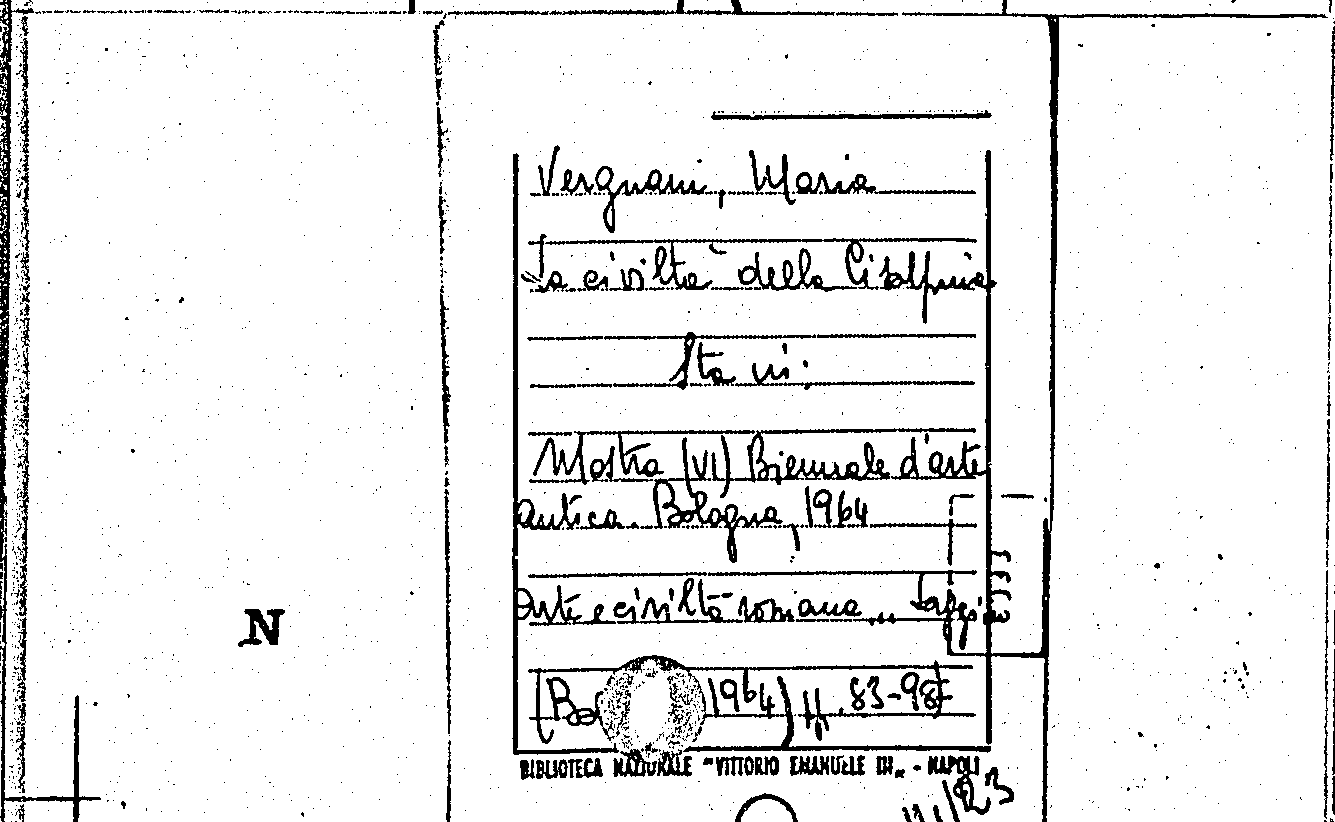 Vergnani, Maria
La civiltà della Cisalpina
Sta in:
Mostra (VI) Biennale d'arte
antica. Bologna, 1964
Arte e civiltà romana... Saggi
1964) pp. 83-98
N
BIBLIOTECA NAZIONALE "VITTORIO EMANUELE III" - NAPOLI